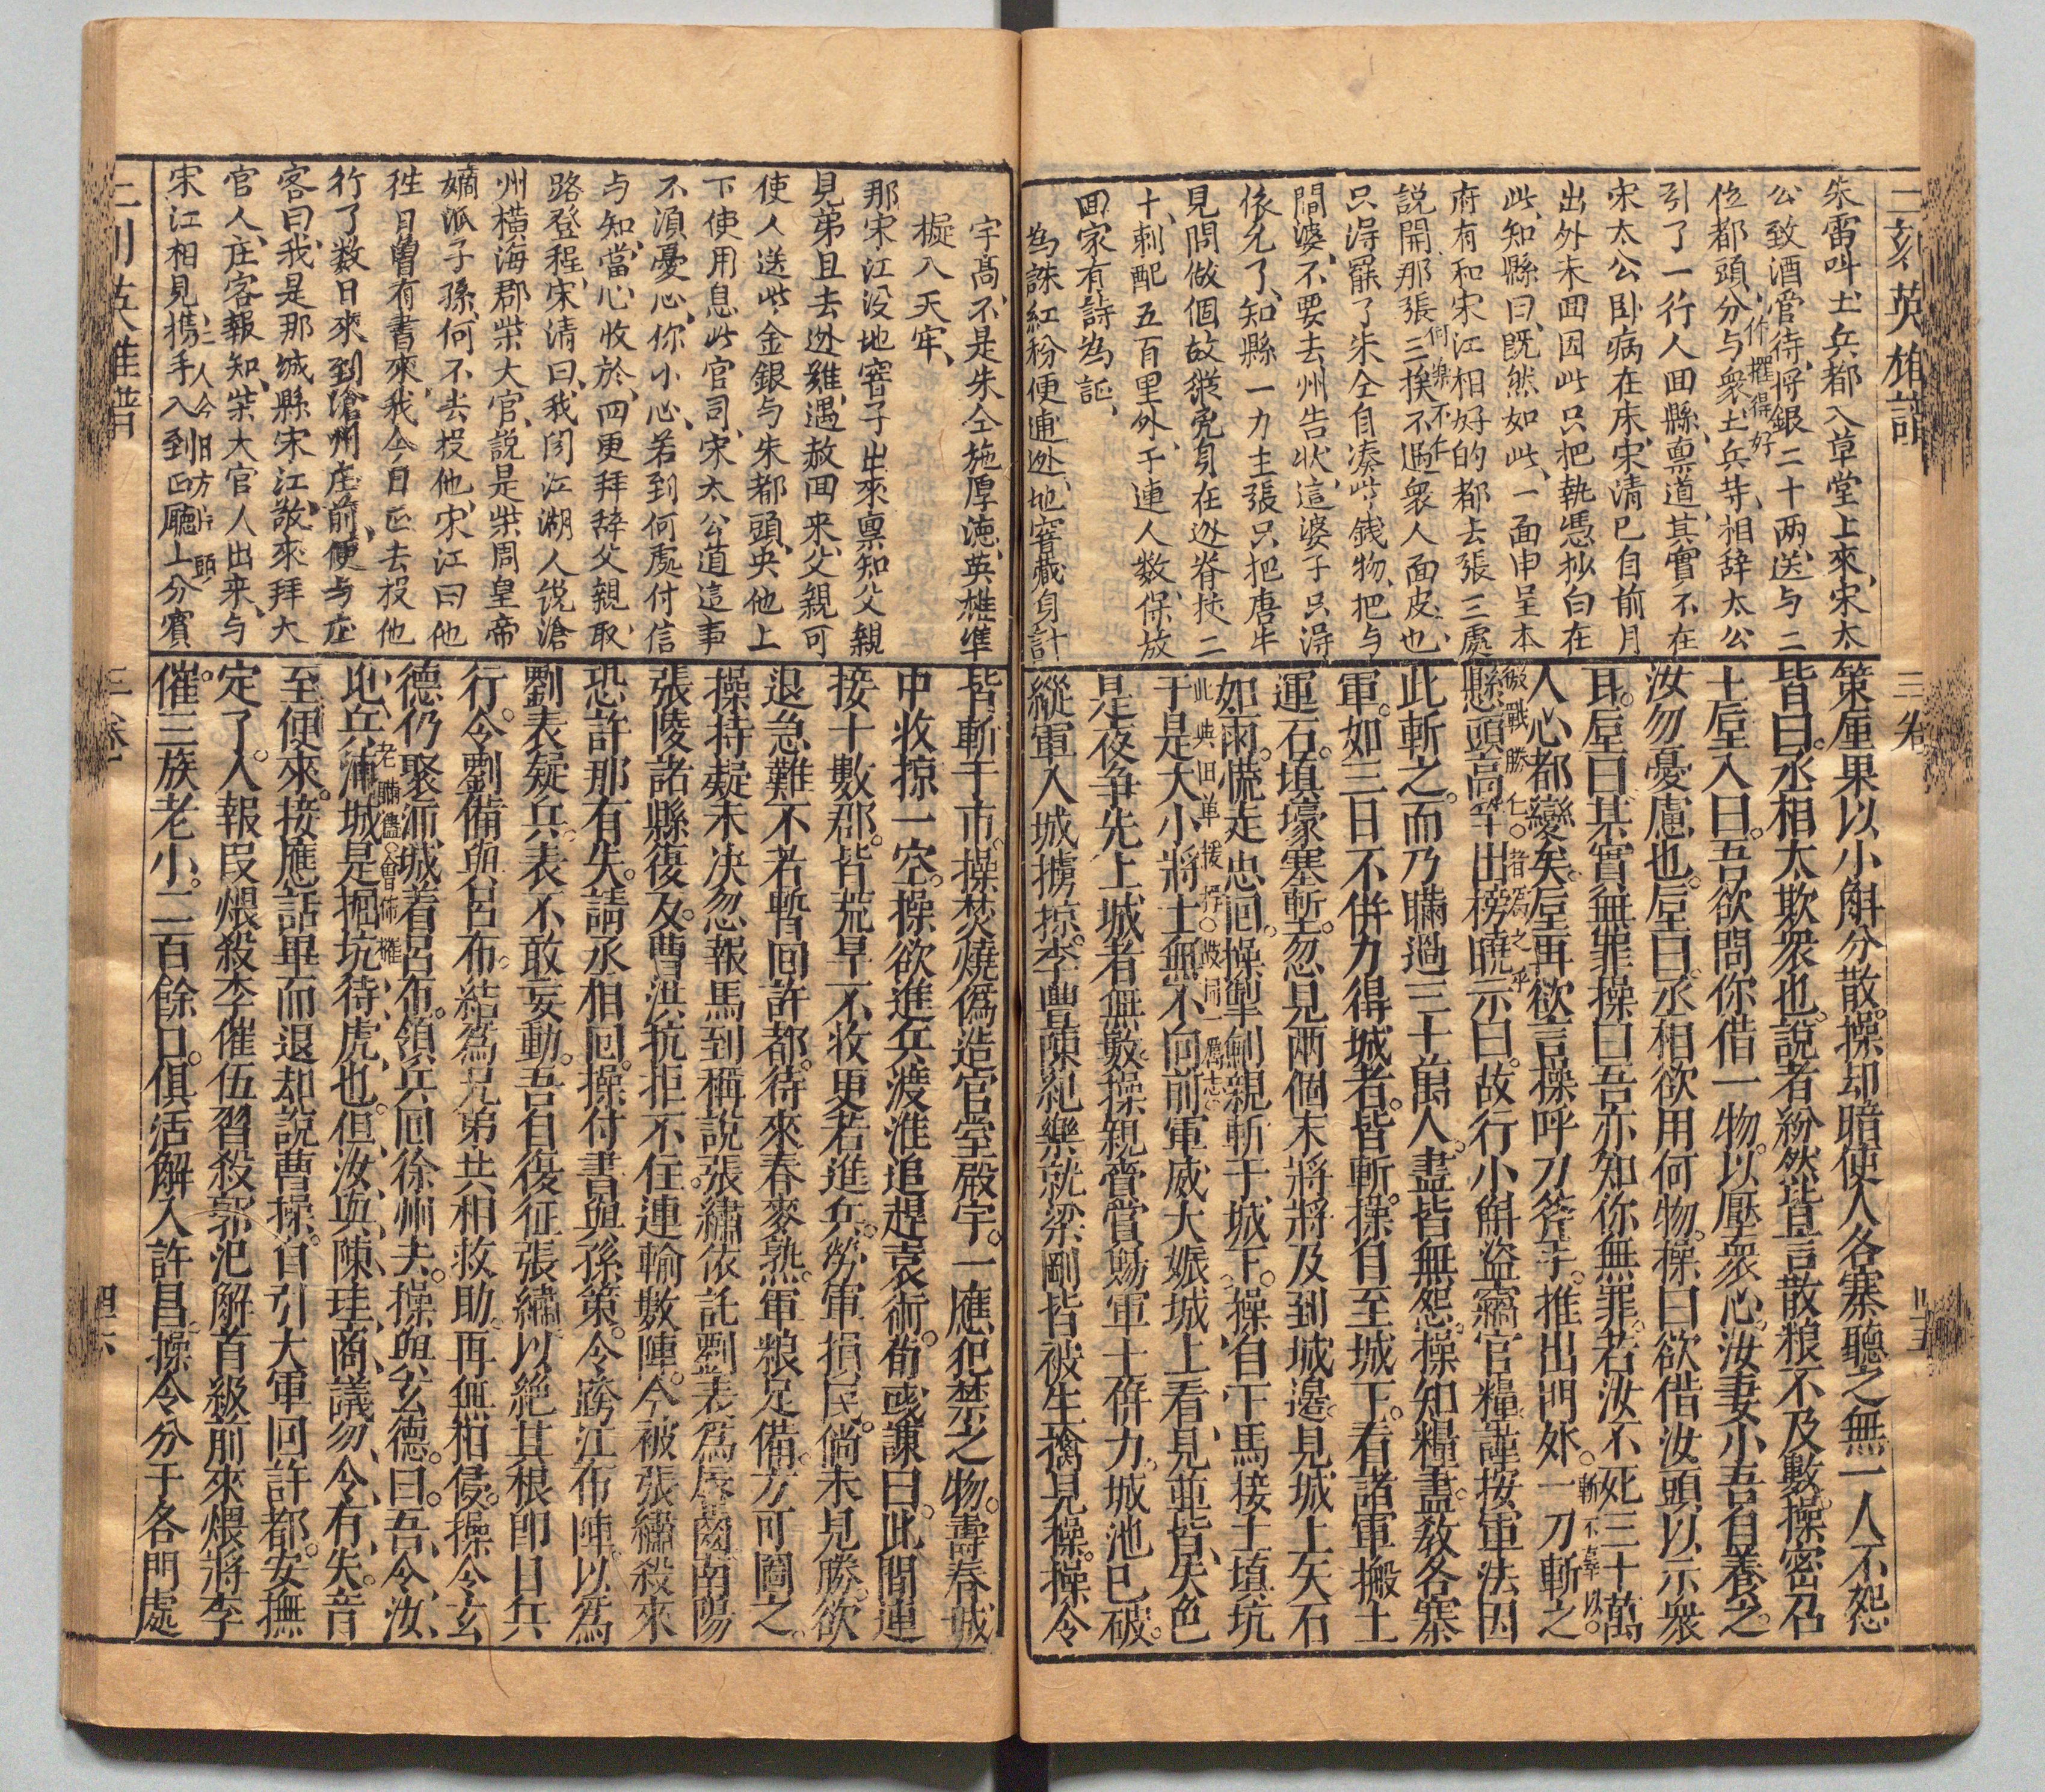 二刻英雄譜
三卷
朱雷叫土兵都入草堂上來、宋太
公致酒管待、將銀二十兩、送与二
位都頭、分与衆土兵等、相辞太公
作擺得好
引了一行人回縣、禀道、其實不在
宋太公臥病在床、宋清已自前月
出外未回因此只把執憑抄白在
此、知縣曰、既然如此、一面申呈本
府有和宋江相好的都去張三處
說開那張三挨不過衆人面皮也、
只得罷了朱仝自凑些錢物、把与
閻婆、不要去州告狀、這婆子只得
依允了、知縣一力主張只把唐牛
見問做個故縱兇身在逃脊杖二
十、刺配五百里外、干連人数、保放
回家有詩為証、
為誅紅粉便逋逃、地窖藏身計
策垕果以小斛分散。操却暗使人各寨聽之無一人不怨
皆曰。丞相太欺衆也。說者紛然皆言散粮不及數。操密召
王垕入曰。吾欲問你借一物。以壓衆心。汝妻小吾自養之。
汝勿憂慮也。垕曰。丞相欲用何物。操曰欲借汝頭以示衆
耳。垕曰某實無罪操曰吾亦知你無罪。若汝不死三十萬
人心都變矣。垕再欲言操呼刀斧手。推出門外。一刀斬之。
斬不辜以。
懸頭高竿出榜曉示曰。故行小斛盜竊官糧謹按軍法因
此斬之。而乃瞞過三十萬人。盡皆無怨。操知糧盡。教各寨
軍。如三日不併力得城者。皆斬。操自至城下。看諸軍搬土
運石。填壕塞塹。忽見兩個末將將及到城邊。見城上矢石
如雨。慌走忠回。操掣劍親斬于城下。操自下馬接土填坑
于是大小將士無不向前軍威大娠城上看見並皆失色
是夜争先上城者無數操親賫賞賜軍士併力。城池已破。
縱軍入城擄掠。李豊陳紀樂就梁剛皆被生擒見操。操令
宇高、不是朱仝施厚徳、英雄準
擬入天牢、
那宋江没地窖子出來禀知父親
見弟且去迯難、遇赦回来、父親可
使人送些金銀与朱都頭、央他上
下使用息此官司、宋太公道這事
不湏憂心、你小心、若到何處付信
与知、當心收於、四更拜辞父親、取
路登程、宋清曰、我聞江湖人説滄
州橫海郡柴大官、説是柴周皇帝
嫡派子孫、何不去投他、宋江曰他
徃日曽有書來、我今日正去投他
行了数日來到滄州庄前、便与庄
客曰、我是那城縣宋江、敬來拜大
官人、庄客報知、柴大官人出来、与
宋江相見、携手入到正廳上分賓
皆斬于市。操焚燒偽造官室殿宇。一應犯禁之物。壽春城
中收掠一空。操欲進兵渡淮追趕袁術。荀彧諫曰。此間連
接十數郡。皆荒旱不收更若進兵。勞軍損民。倘未見勝。欲
退急難不若暫回許都。待來春麥熟。軍粮足備。方可圖之。
操持疑未决忽報馬到稱說張繡依託劉表為唇齒南陽
張陵諸縣復及。曹洪抗拒不住連輸數陣。今被張繡殺來
恐許那有失。請丞相回。操付書與孫策。令跨江布陣。以為
劉表疑兵。表不敢妄動。吾自復征張繡以絶其根即日兵
行。令劉備與呂布。結為兄弟共相救助。再無相侵。操令玄
德仍聚沛城着呂布。領兵回徐州去。操與玄德。曰。吾、令、汝、
屯兵沛城是掘坑待虎也。但汝與陳珪、商議勿、令有失。音
至便來。接應話畢而退却說曹操。自引大軍回許都。安撫
定了。人報段煨殺李催伍習殺郭汜解首級前來煨將李
催三族老小。二百餘口。俱活解入許昌操令分于各門處